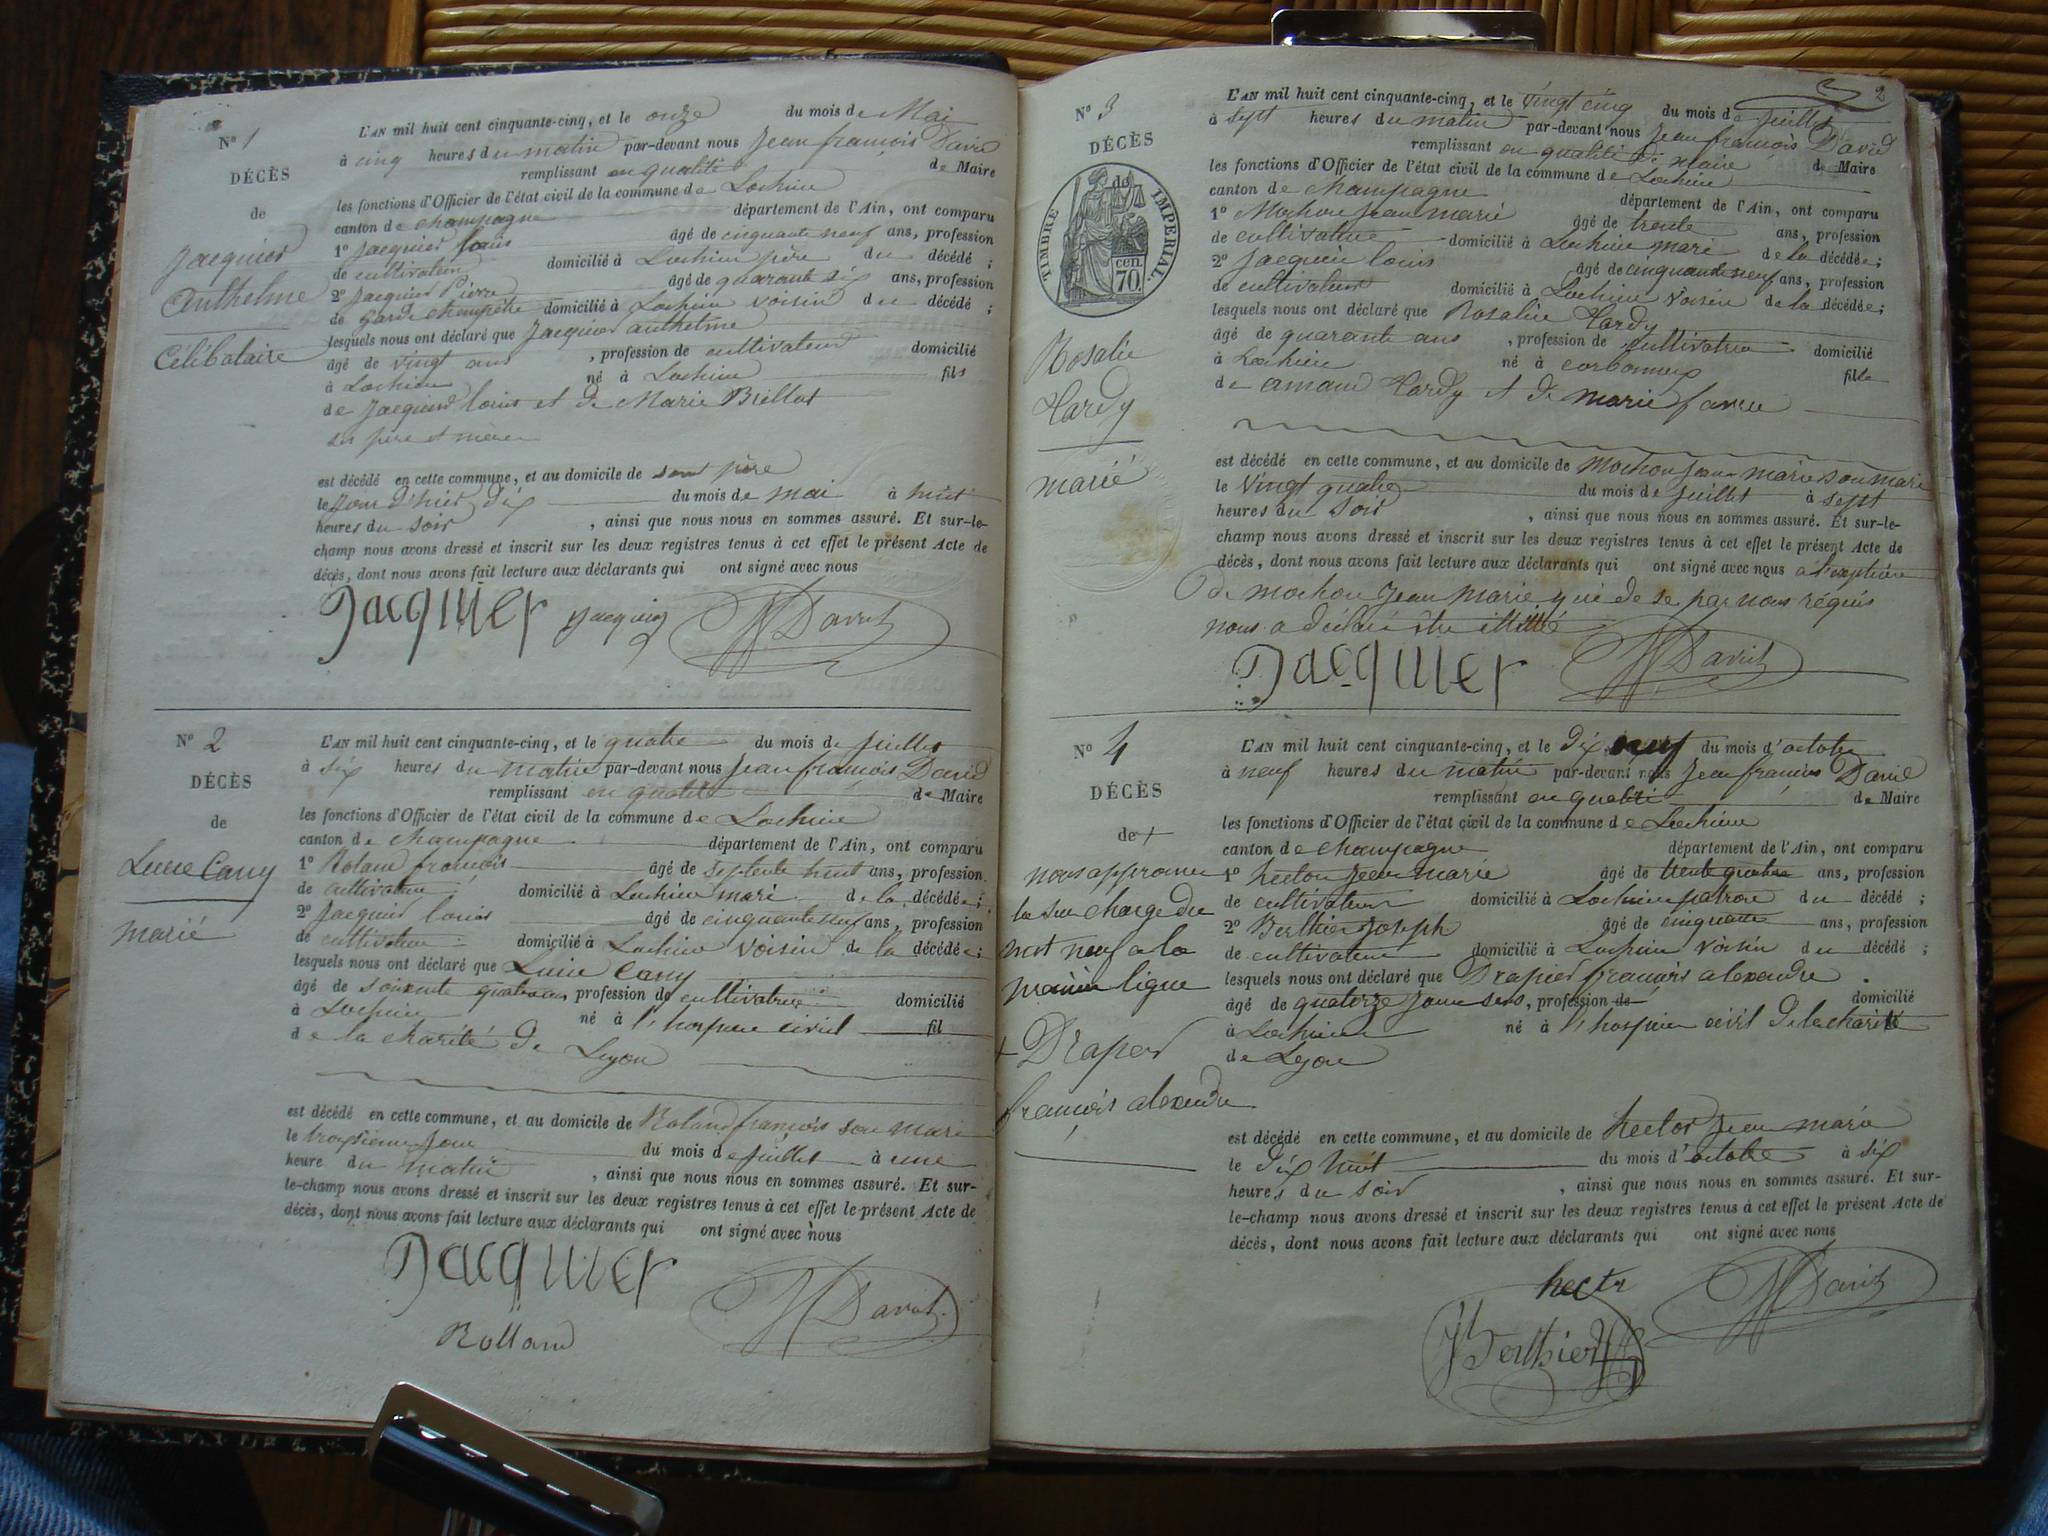 N° 1
DÉCÈS
de
Jacquier
Anthelme
Célibataire
L'AN mil huit cent cinquante-cinq, et le onze du mois de Mai
à cinq heures du matin par-devant nous Jean françois David
remplissant en qualité de Maire
les fonctions d'Officier de l'état civil de la commune de Lochieu
canton de champagne département de l'Ain, ont comparu
1° Jacquier Louis âgé de cinquante neuf ans, profession
de cultivateur domicilié à Lochieu père du décédé ;
2° Jacquier Pierre âgé de quarante six ans, profession
de garde champêtre domicilié à Lochieu voisin du décédé ;
lesquels nous ont déclaré que Jacquier anthelme
âgé de vingt ans , profession de cultivateur domicilié
à Lochieu né à Lochieu fils
de Jacquier louis et de Marie Brillat
ses père et mère
est décédé en cette commune, et au domicile de son père
le Jour d'hier dix du mois de mai à huit
heures du soir , ainsi que nous nous en sommes assuré. Et sur-le-
champ nous avons dressé et inscrit sur les deux registres tenus à cet effet le présent Acte de
décès, dont nous avons fait lecture aux déclarants qui ont signé avec nous
Jacquier Jacquier David
N° 2
DÉCÈS
de
Lucie Cany
marié
L'AN mil huit cent cinquante-cinq, et le quatre du mois de juillet
à six heures du matin par-devant nous Jean françois David
remplissant en qualité de Maire
les fonctions d'Officier de l'état civil de la commune de Lochieu
canton de champagne département de l'Ain, ont comparu
1° Roland françois âgé de septente huit ans, profession
de cultivateur domicilié à Lochieu mari de la décédée ;
2° Jacquier louis âgé de cinquante neuf ans, profession
de cultivateur domicilié à Lochieu voisin de la décédée ;
lesquels nous ont déclaré que Lucie Cany
âgé de soixente quatre ans profession de cultivatrice domicilié
à Lochieu né à l'hospice civil fil
de la charité de Lyon
est décédé en cette commune, et au domicile de Roland françois son mari
le troisième jour du mois de juillet à une
heure du matin , ainsi que nous nous en sommes assuré. Et sur-
le-champ nous avons dressé et inscrit sur les deux registres tenus à cet effet le présent Acte de
décès, dont nous avons fait lecture aux déclarants qui ont signé avec nous
Jacquier David
Rolland
2
N° 3
DÉCÈS
de
TIMBRE IMPERIAL.
70. cen
Rosalie
Hardy
marié
L'AN mil huit cent cinquante-cinq, et le vingt cinq du mois de juillet
à sept heures du matin par-devant nous Jean françois David
remplissant en qualité de maire de Maire
les fonctions d'Officier de l'état civil de la commune de Lochieu
canton de champagne département de l'Ain, ont comparu
1° Mochon Jean marie âgé de trente ans, profession
de cultivateur domicilié à Lochieu mari de la décédée ;
2° Jacquier louis âgé de cinquante neuf ans, profession
de cultivateur domicilié à Lochieu voisin de la décédée ;
lesquels nous ont déclaré que Rosalie Hardy
âgé de quarante ans , profession de cultivatrice domicilié
à Lochieu né à corbonnex fille
de amand Hardy et de marie favre
est décédé en cette commune, et au domicile de Mochon Jean marie son mari
le vingt quatre du mois de juillet à sept
heures du soir , ainsi que nous nous en sommes assuré. Et sur-le-
champ nous avons dressé et inscrit sur les deux registres tenus à cet effet le présent Acte de
décès, dont nous avons fait lecture aux déclarants qui ont signé avec nous a l'exeption
de mochon Jean Marie qui de se par nous réquis
nous a déclaré être illitté
Jacquier David
N° 4
DÉCÈS
de +
nous approuvons
la sur charge du
mot neuf a la
première ligne
+ Drapier
françois alexandre
L'AN mil huit cent cinquante-cinq, et le dix neuf du mois d'octobre
à neuf heures du matin par-devant nous Jean françois David
remplissant en qualité de Maire
les fonctions d'Officier de l'état civil de la commune de Lochieu
canton de champagne département de l'Ain, ont comparu
1° hector Jean marie âgé de trente quatre ans, profession
de cultivateur domicilié à Lochieu patron du décédé ;
2° Berthier Joseph âgé de cinquante ans, profession
de cultivateur domicilié à Lochieu voisin du décédé ;
lesquels nous ont déclaré que Drapier françois alexandre
âgé de quatorze jours , profession de domicilié
à Lochieu né à l'hospice civil de la charité
de Lyon
est décédé en cette commune, et au domicile de hector Jean marie
le dix huit du mois d'octobre à six
heures du soir , ainsi que nous nous en sommes assuré. Et sur-
le-champ nous avons dressé et inscrit sur les deux registres tenus à cet effet le présent Acte de
décès, dont nous avons fait lecture aux déclarants qui ont signé avec nous
hector David
Berthier